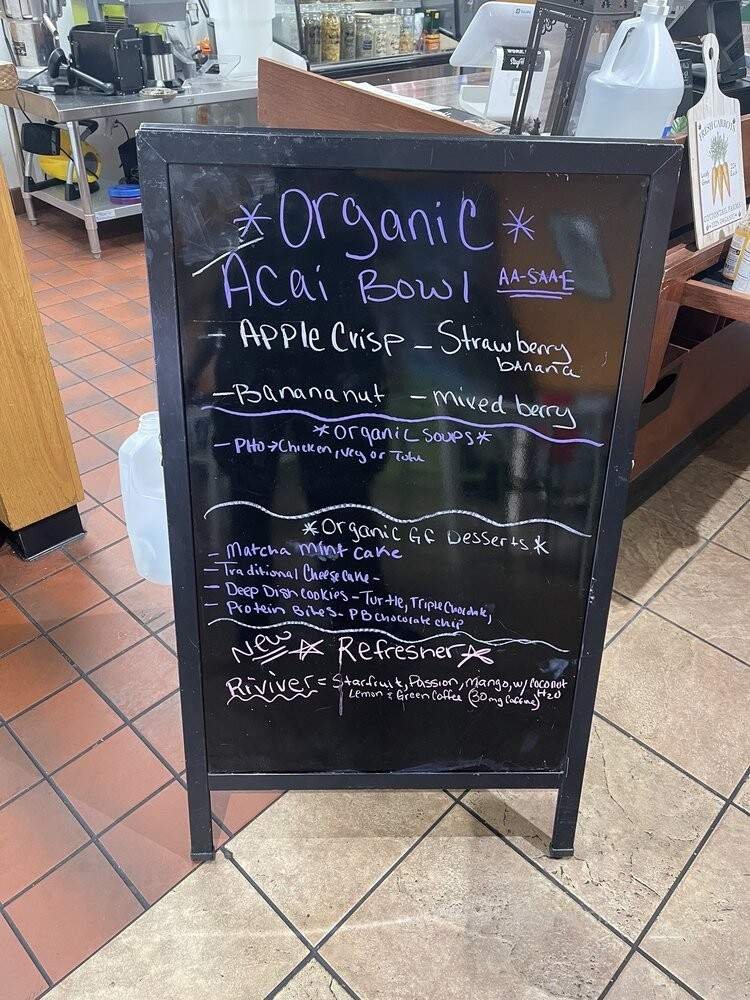 *Organic*
Acai Bowl AA-SAA-E
- Apple Crisp - Strawberry
banana
- Banana nut - mixed berry
*Organic Soups*
- PHO→Chicken, Veg or Tofu
*Organic GF Desserts*
- Matcha Mint Cake
- Traditional Cheesecake -
- Deep Dish Cookies - Turtle, Triple Chocolate,
- Protein Bites - PB Chocolate chip
New * Refresher *
Riviver = Starfruit, Passion, Mango, w/ Coconut
H2O
Lemon & Green Coffee (30mg Caffine)
FRESH CARROTS